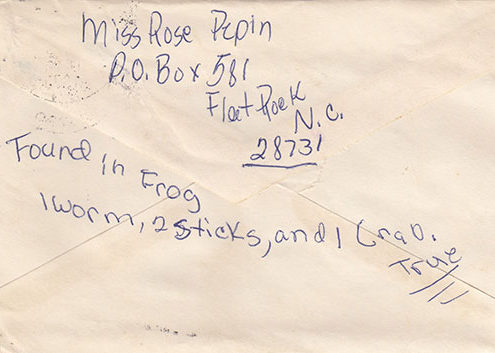 Miss Rose Pepin
P.O. Box 581
Flat Rock
N.C.
28731
Found in Frog
1 worm, 2 sticks, and 1 Crab.
True